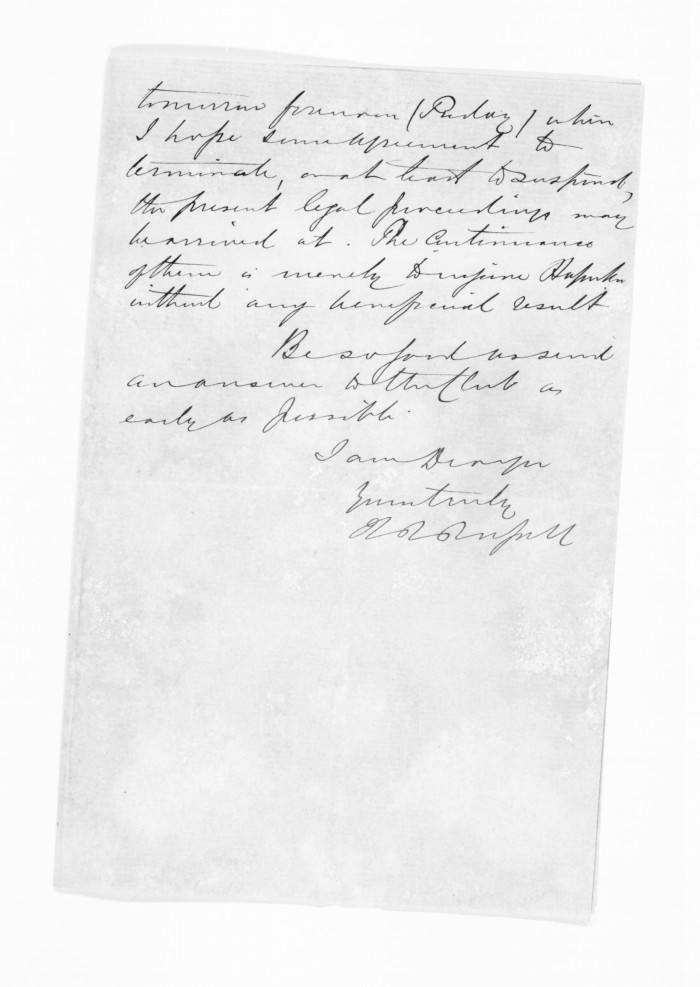 tomorrow forenoon (Friday) when
I hope some agreement to
terminate, or at least to suspend,
the present legal proceedings may
be arrived at. The continuance
of them is merely to injure
without any beneficial result
Be so good as send
an answer to the Club as
early as possible.
I am Dear Sir
Yours truly
Russell